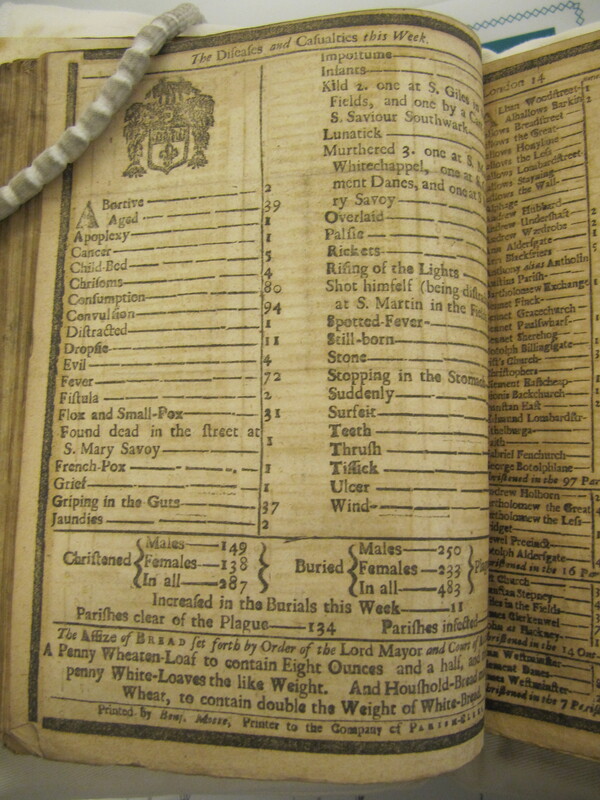 The Diseases and Casualties this Week.
Abortive 2
Aged 39
Apoplexy 1
Cancer 1
Child-Bed 5
Chrisoms 4
Consumption 80
Convulsion 94
Distracted 1
Dropsie 11
Evil 4
Fever 72
Fistula 2
Flox and Small-Pox 31
Found dead in the street at
S. Mary Savoy 1
French-Pox 1
Grief 1
Griping in the Guts 37
Jaundies 2
Impostume
Infants
Kild 2. one at S. Giles in
Fields, and one by a
S. Saviour Southwark
Lunatick
Murthered 3. one at S.
Whitechappel, one at
ment Danes, and one at
ry Savoy
Overlaid
Palsie
Rickets
Rising of the Lights
Shot himself (being
at S. Martin in the
Spotted-Fever
Still-born
Stone
Stopping in the Stomach
Suddenly
Surfeit
Teeth
Thrush
Tissick
Ulcer
Wind
Christened { Males 149 Females 138 In all 287 }
Buried { Males 250 Females 233 In all 483 }
Increased in the Burials this Week 11
Parishes clear of the Plague 134 Parishes infected
The Assize of BREAD set forth by Order of the Lord Mayor and Court of
A Penny Wheaten-Loaf to contain Eight Ounces and a half, and
penny White-Loaves the like Weight. And Houshold-Bread
Wheat, to contain double the Weight of White-Bread.
Printed by Benj. Motte, Printer to the Company of PARISH-CLERKS
London 14
Woodstreet
Alhallows Barking
Breadstreet
the Great
Honylane
the Less
Lombardstreet
Stayning
the Wall
Hubbard
Undershaft
Wardrobe
Aldersgate
Blackfriers
alias
Parish
Exchange
Finck
Gracechurch
Paulswharf
Sherehog
Billingsgate
Church
Eastcheap
Backchurch
East
Fenchurch
Botolphlane
in the 97 Par
Holborn
the Great
the Less
Bridget
Precinct
Aldersgate
in the 16 Par
Church
Stepney
in the Fields
Clerkenwel
at Hackney
in the 14 Out
Westminster
Danes
Westminster
in the 7 Parish